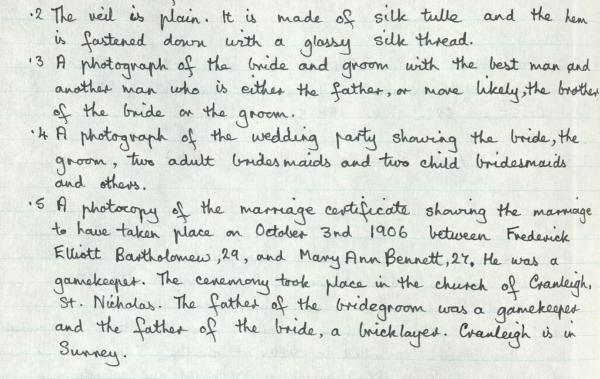 .2 The veil is plain. It is made of silk tulle and the hem
is fastened down with a glassy silk thread.
.3 A photograph of the bride and groom with the best man and
another man who is either the father, or more likely, the brother
of the bride or the groom.
.4 A photograph of the wedding party showing the bride, the
groom, two adult bridesmaids and two child bridesmaids
and others.
.5 A photocopy of the marriage certificate showing the marriage
to have taken place on October 3nd 1906 between Frederick
Elliott Bartholomew, 29, and Mary Ann Bennett, 27. He was a
gamekeeper. The ceremony took place in the church of Cranleigh,
St. Nicholas. The father of the bridegroom was a gamekeeper
and the father of the bride, a bricklayer. Cranleigh is in
Surrey.